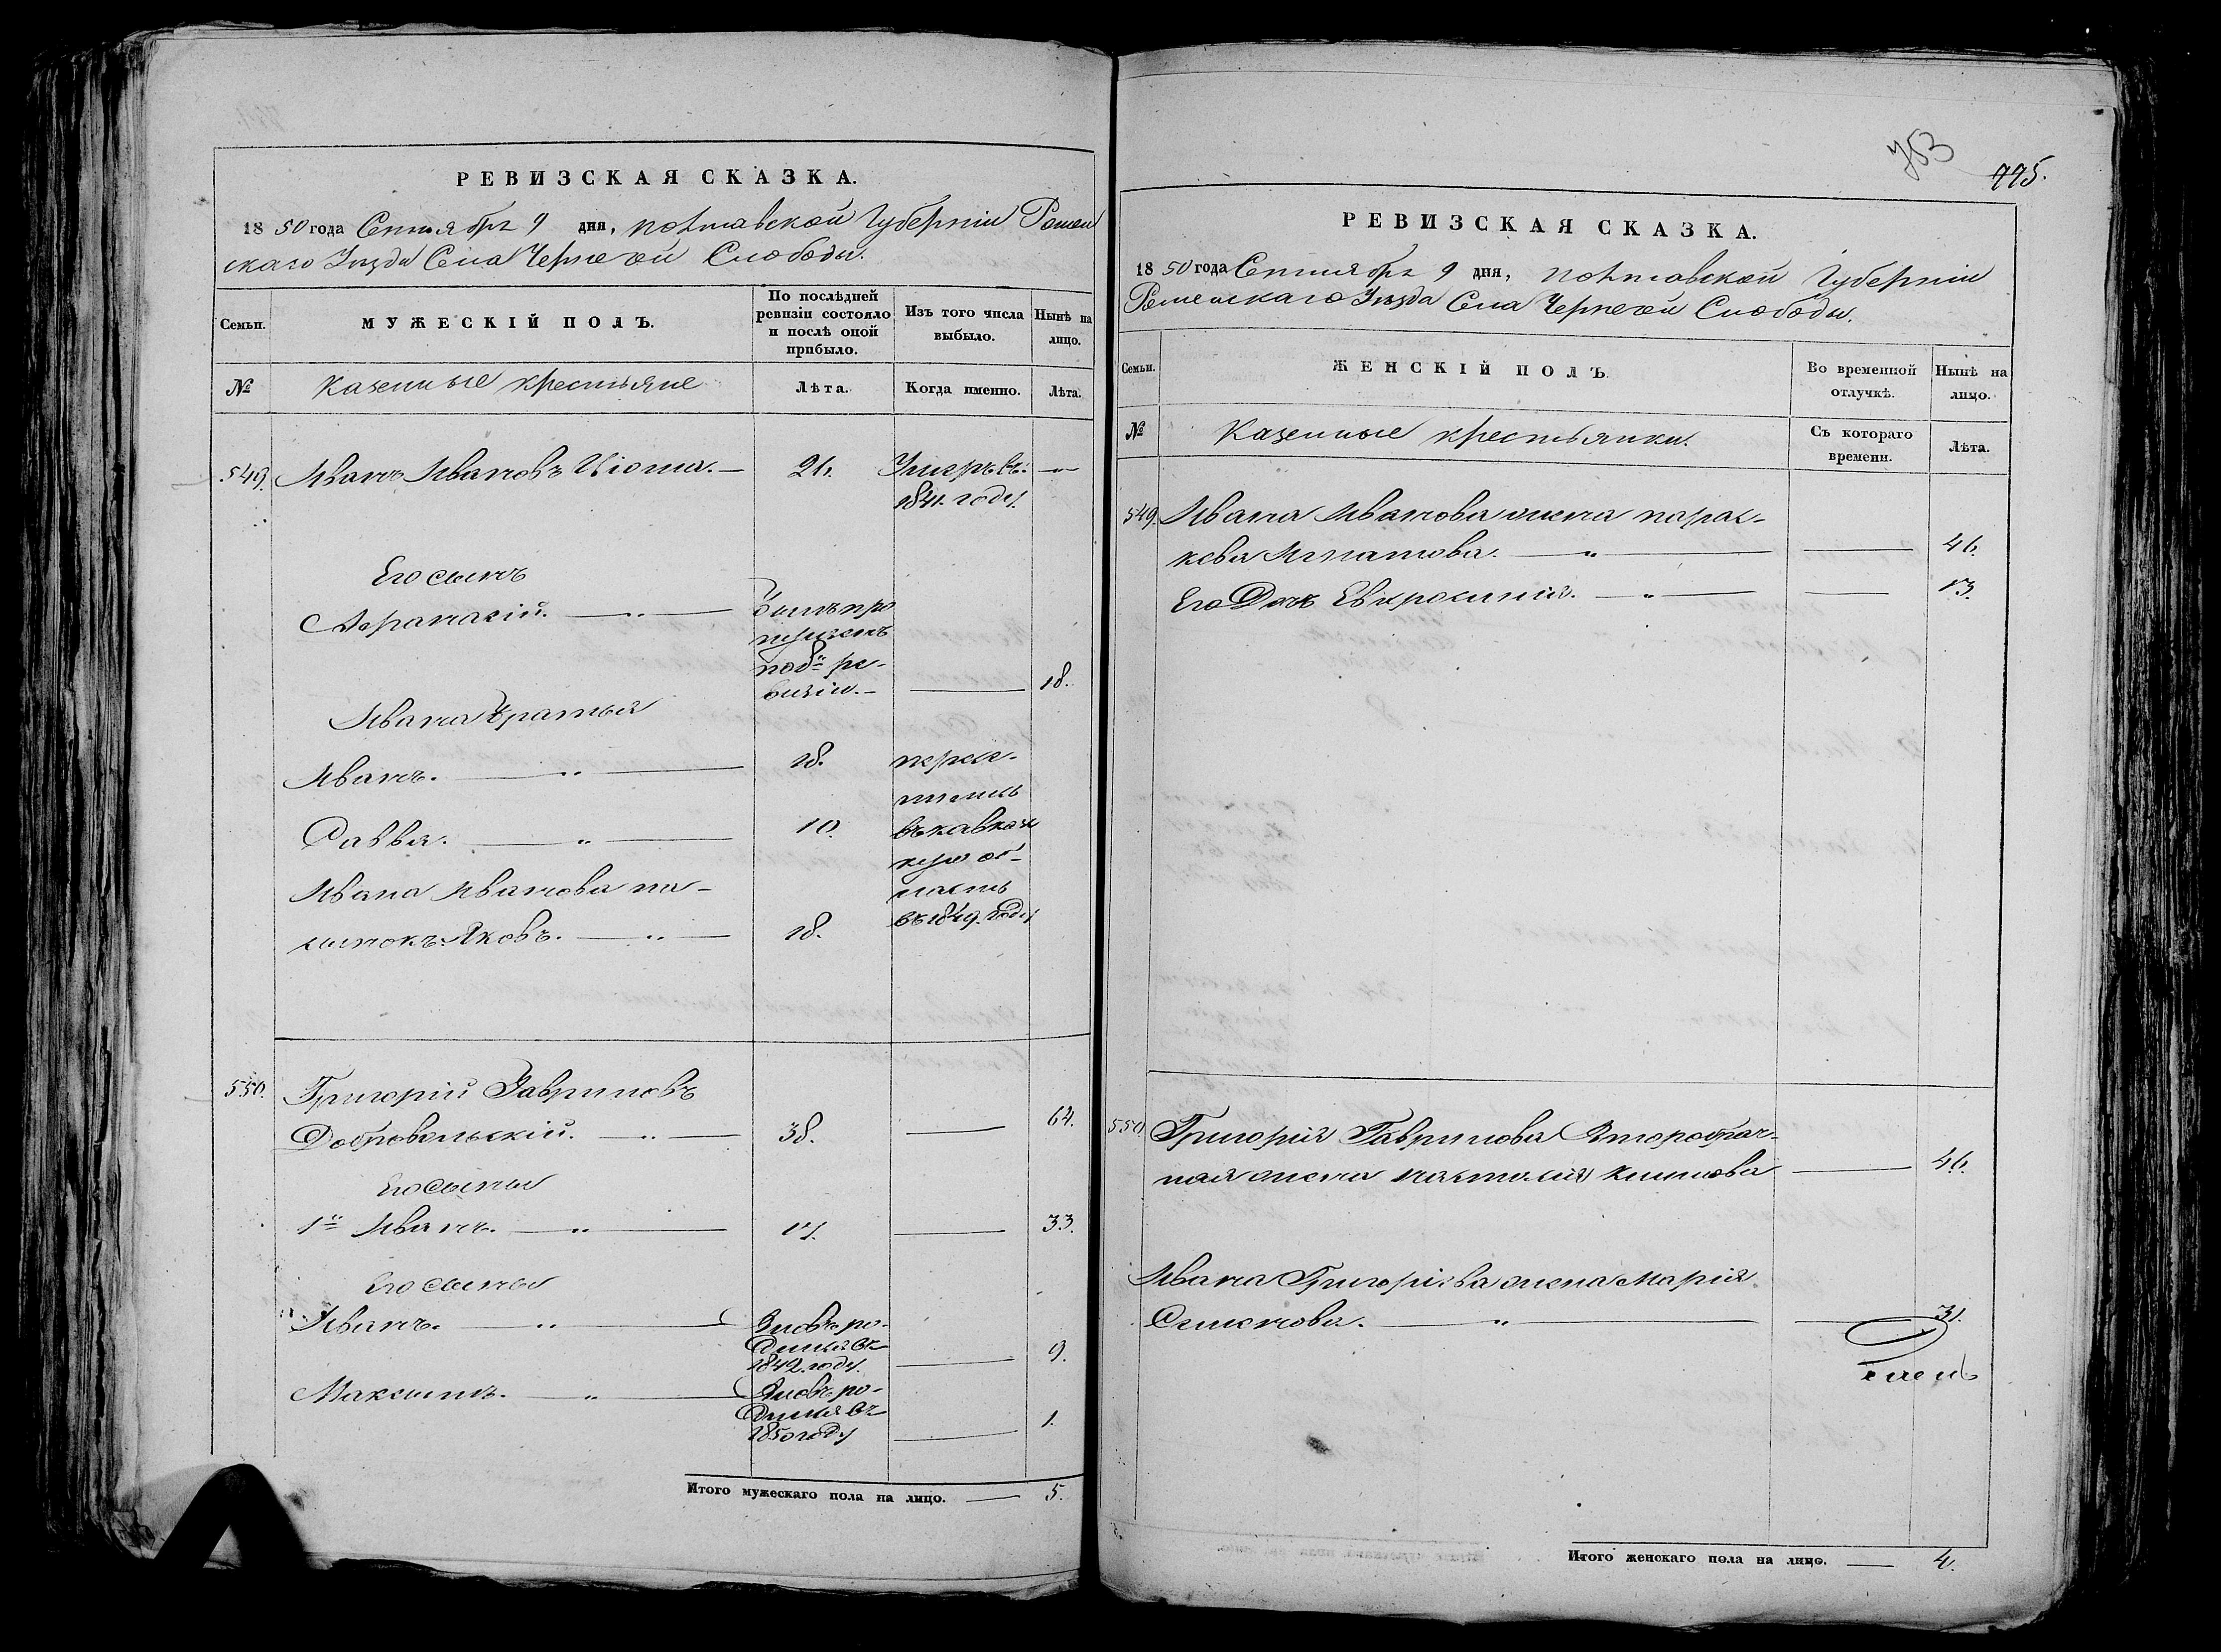 РЕВИЗСКАЯ СКАЗКА.
1850 года Сентября 9 дня, Полтавской Губерніи Ромен
скаго Уезда Села Чернечей Слободы.
Семьи.
МУЖЕСКІЙ ПОЛЪ.
По послѣдней
ревизіи состояло
и послѣ оной
прибыло.
Изъ того числа
выбыло.
Нынѣ на
лицо.
№
Казенные крестьяне
Лѣта.
Когда именно.
Лѣта.
549. Иванъ Ивановъ — 26. Умеръ въ. — „ —
1841. году
Его сынъ
Афанасій. — „ — былъ про
пущенъ
по 8й ре-
визіи. — — 18.
Ивана братья
Иванъ. — „ — 18. пересе-
лились
Савва. — „ — 10. въ кавказ
кую об-
Ивана Иванова па- ласть
сынокъ Яковъ. — „ — 18. въ 1849. году
550. Григорій Гавриловъ
Добровольскій. — „ — 38. — 64.
Его сыны
1й Иванъ. — „ — 17. — 33.
Его сыны
Иванъ. — „ — Вновь ро-
дился въ
1842. году. — 9.
Максимъ. — „ — Вновь ро-
дился въ
1850 году — 1.
Итого мужескаго пола на лицо. — 5.
753
775.
РЕВИЗСКАЯ СКАЗКА.
1850 года Сентября 9 дня, Полтавской Губерніи
Роменскаго Уезда Села Чернечей Слободы.
Семьи.
ЖЕНСКІЙ ПОЛЪ.
Во временной
отлучкѣ.
Нынѣ на
лицо.
№
Казенные крестьянки.
Съ котораго
времени.
Лѣта.
549. Ивана Иванова жена парас-
кева Игнатова. — „ — — 46.
Его Дочь Евфросинія. — „ — — 13.
550. Григорія Гаврилова Второбрач-
ная жена Климова — 46.
Ивана Григорьева жена Марія
Семенова. — „ — — 31.
Итого женскаго пола на лицо. — 4.